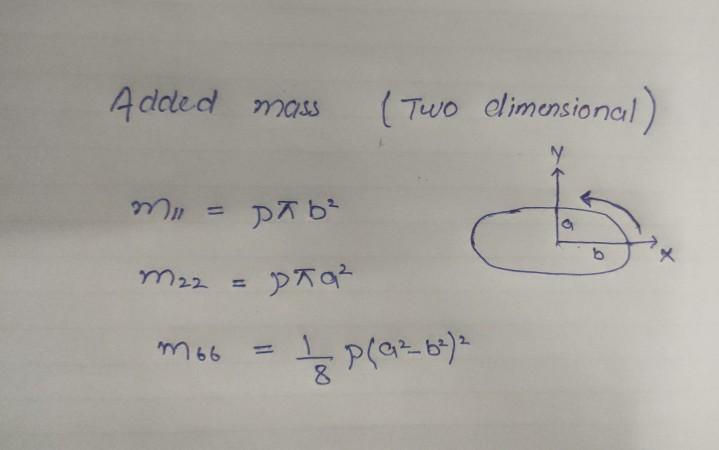 Added mass (Two dimensional)
Y
m₁₁ = ρπb²
a
b
X
m₂₂ = ρπa²
m₆₆ = 1/8 ρ(a²-b²)²